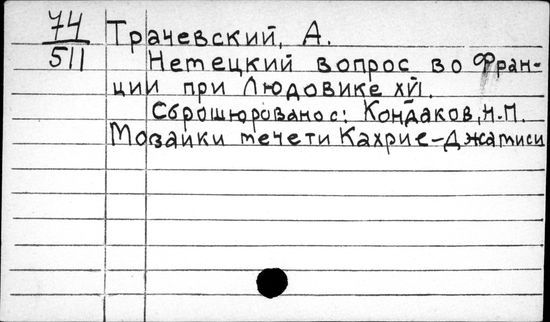 74 Трачевский, А.
511 Нетецкий вопрос во Фран-
ции при Людовике XVI.
Сброшюровано с: Кондаков, Н.П.
Мозаики течети Кахрие-Джатиси